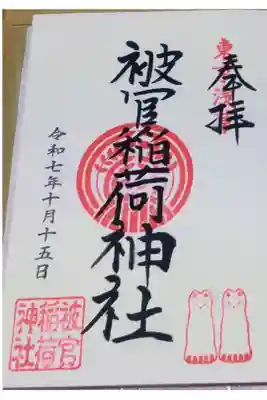 奉拝
被官稲荷神社
令和七年十月十五日
被官
稲荷
神社